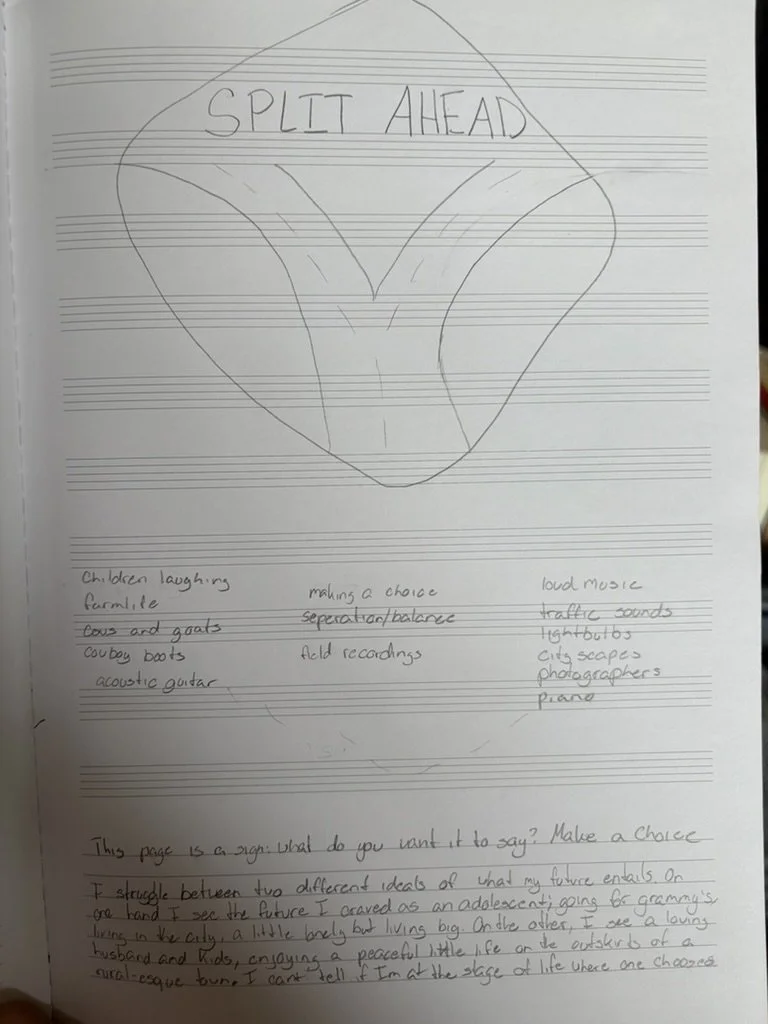 SPLIT AHEAD
Children laughing
farmlife
cows and goats
cowboy boots
acoustic guitar
making a choice
seperation/balance
field recordings
loud music
traffic sounds
lightbulbs
city scapes
photographers
piano
This page is a sign: what do you want it to say? Make a Choice
I struggle between two different ideals of what my future entails. On
one hand I see the future I craved as an adolescent; going for grammy's,
living in the city, a little lonely but living big. On the other, I see a loving
husband and kids, enjoying a peaceful little life on the outskirts of a
rural-esque town. I can't tell if I'm at the stage of life where one chooses